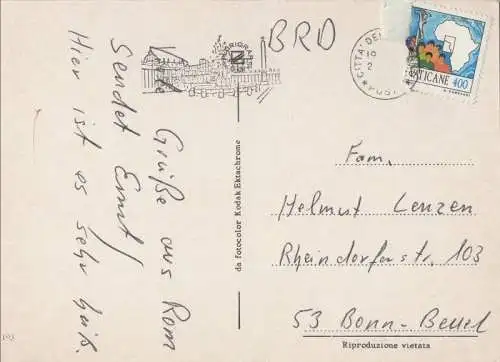 Viele
Grüße aus Rom
sendet Ernst
Hier ist es sehr heiß.
BRD
CITTA' DEL
10
2
POSTE
VATICANE 400
da fotocolor Kodak Ektachrome
Fam.
Helmut Lenzen
Rheindorferstr. 103
53 Bonn-Beuel
Riproduzione vietata